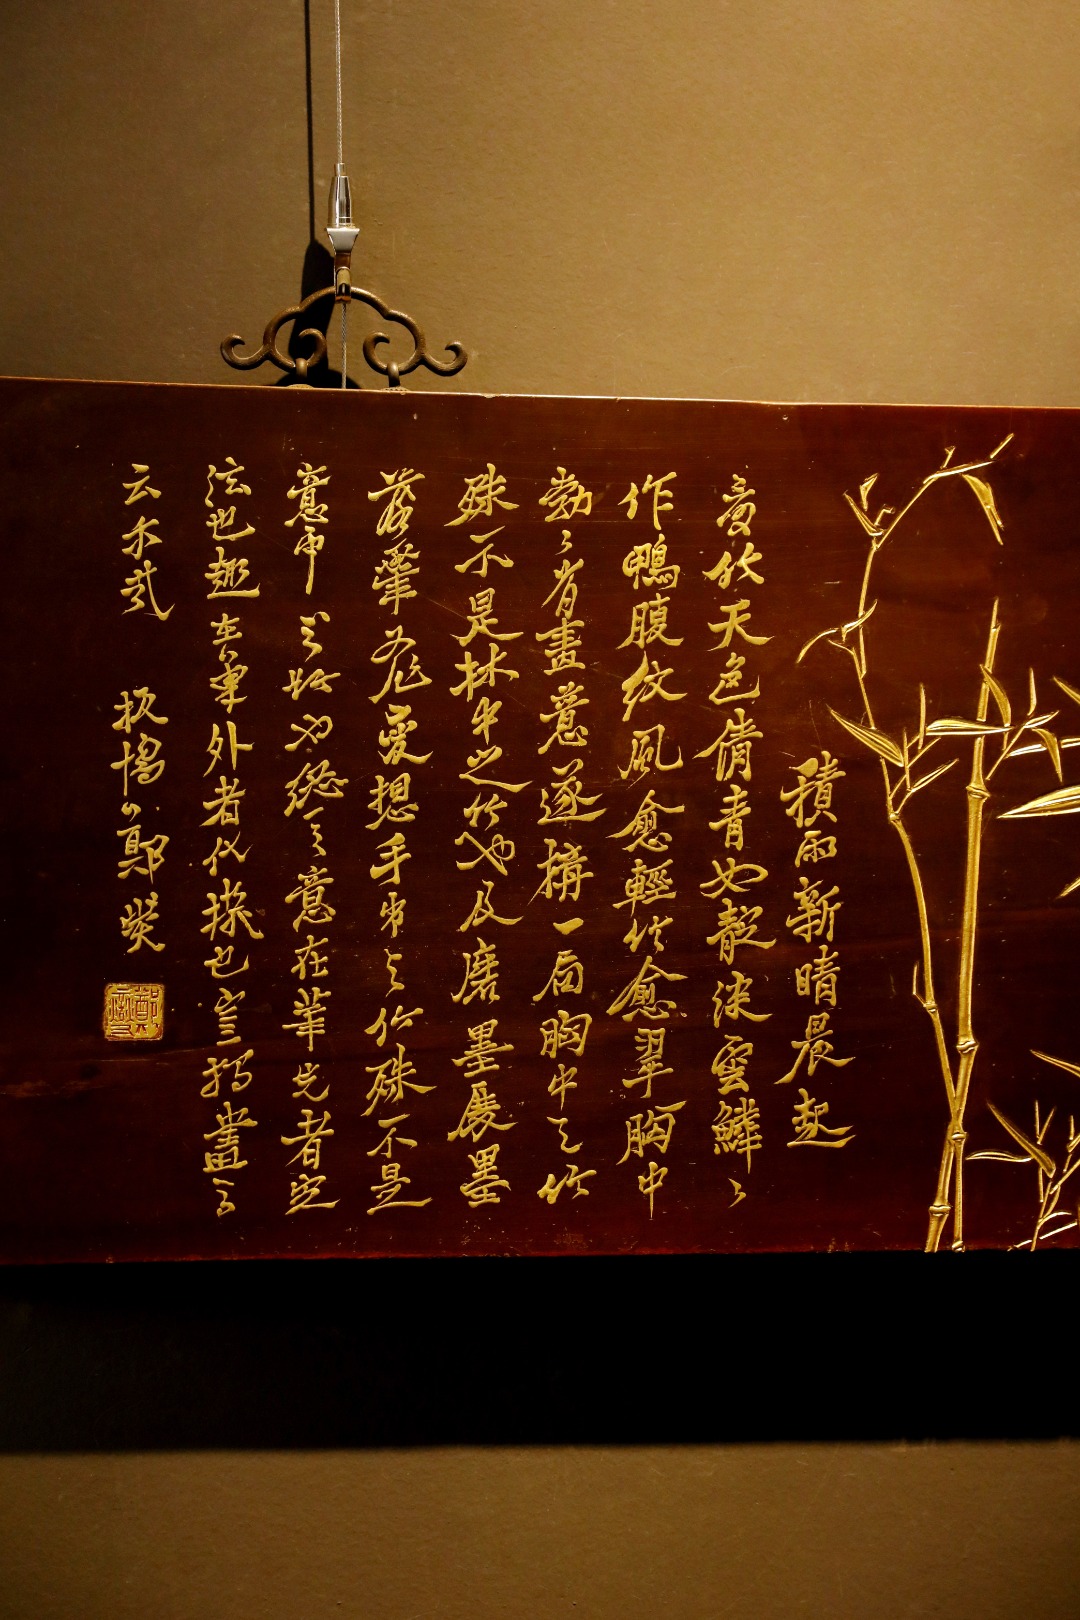 積雨新晴晨起
天色倩青如靛雲鱗〻
作鴨腹紋風愈輕竹愈翠胸中
勃〻有畫意遂構一局胸中之竹
殊不是林中之竹也及磨墨展墨
落筆變想手中之竹殊不是
意中之竹也總之意在筆先者定
法也趣在筆外者化機也豈獨畫
云乎哉 板橋鄭燮